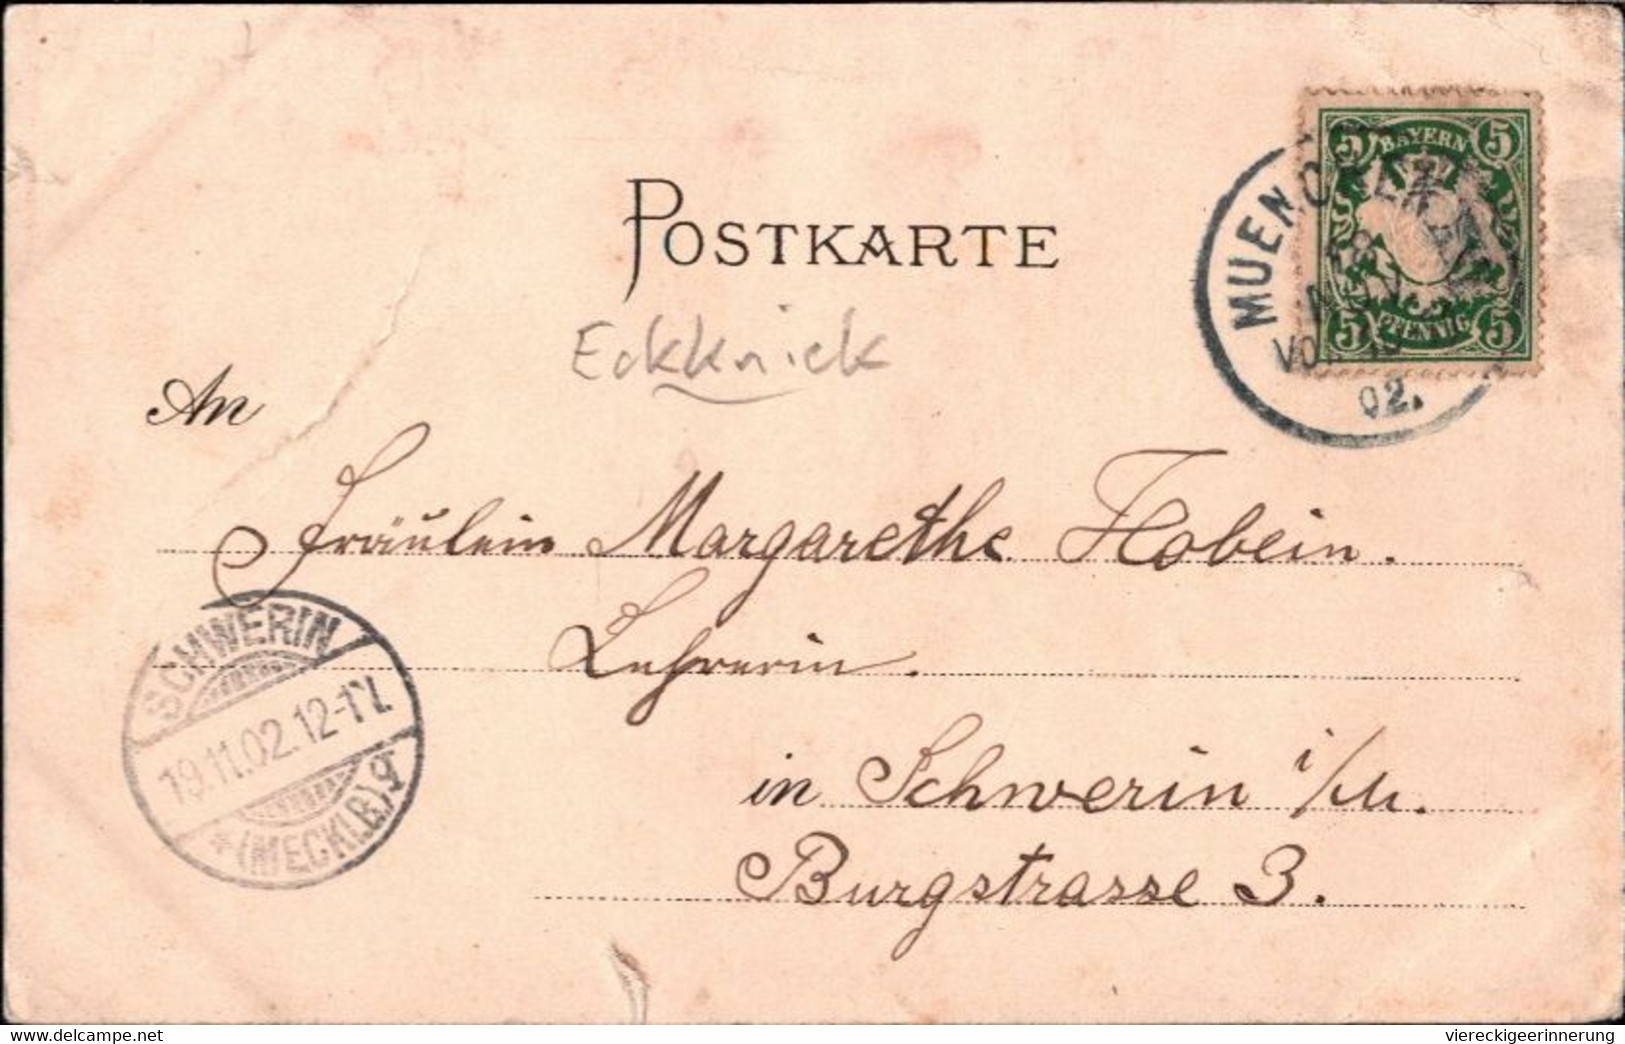 POSTKARTE
Eckknick
5 BAYERN 5
5 PFENNIG 5
MUENCHEN
18
NOV
VOR
02.
An
Fräulein Margarethe Hobein.
Lehrerin.
in Schwerin i/M.
Burgstrasse 3.
SCHWERIN
19.11.02.12-1
*(MECKLB.)
viereckigeerinnerung